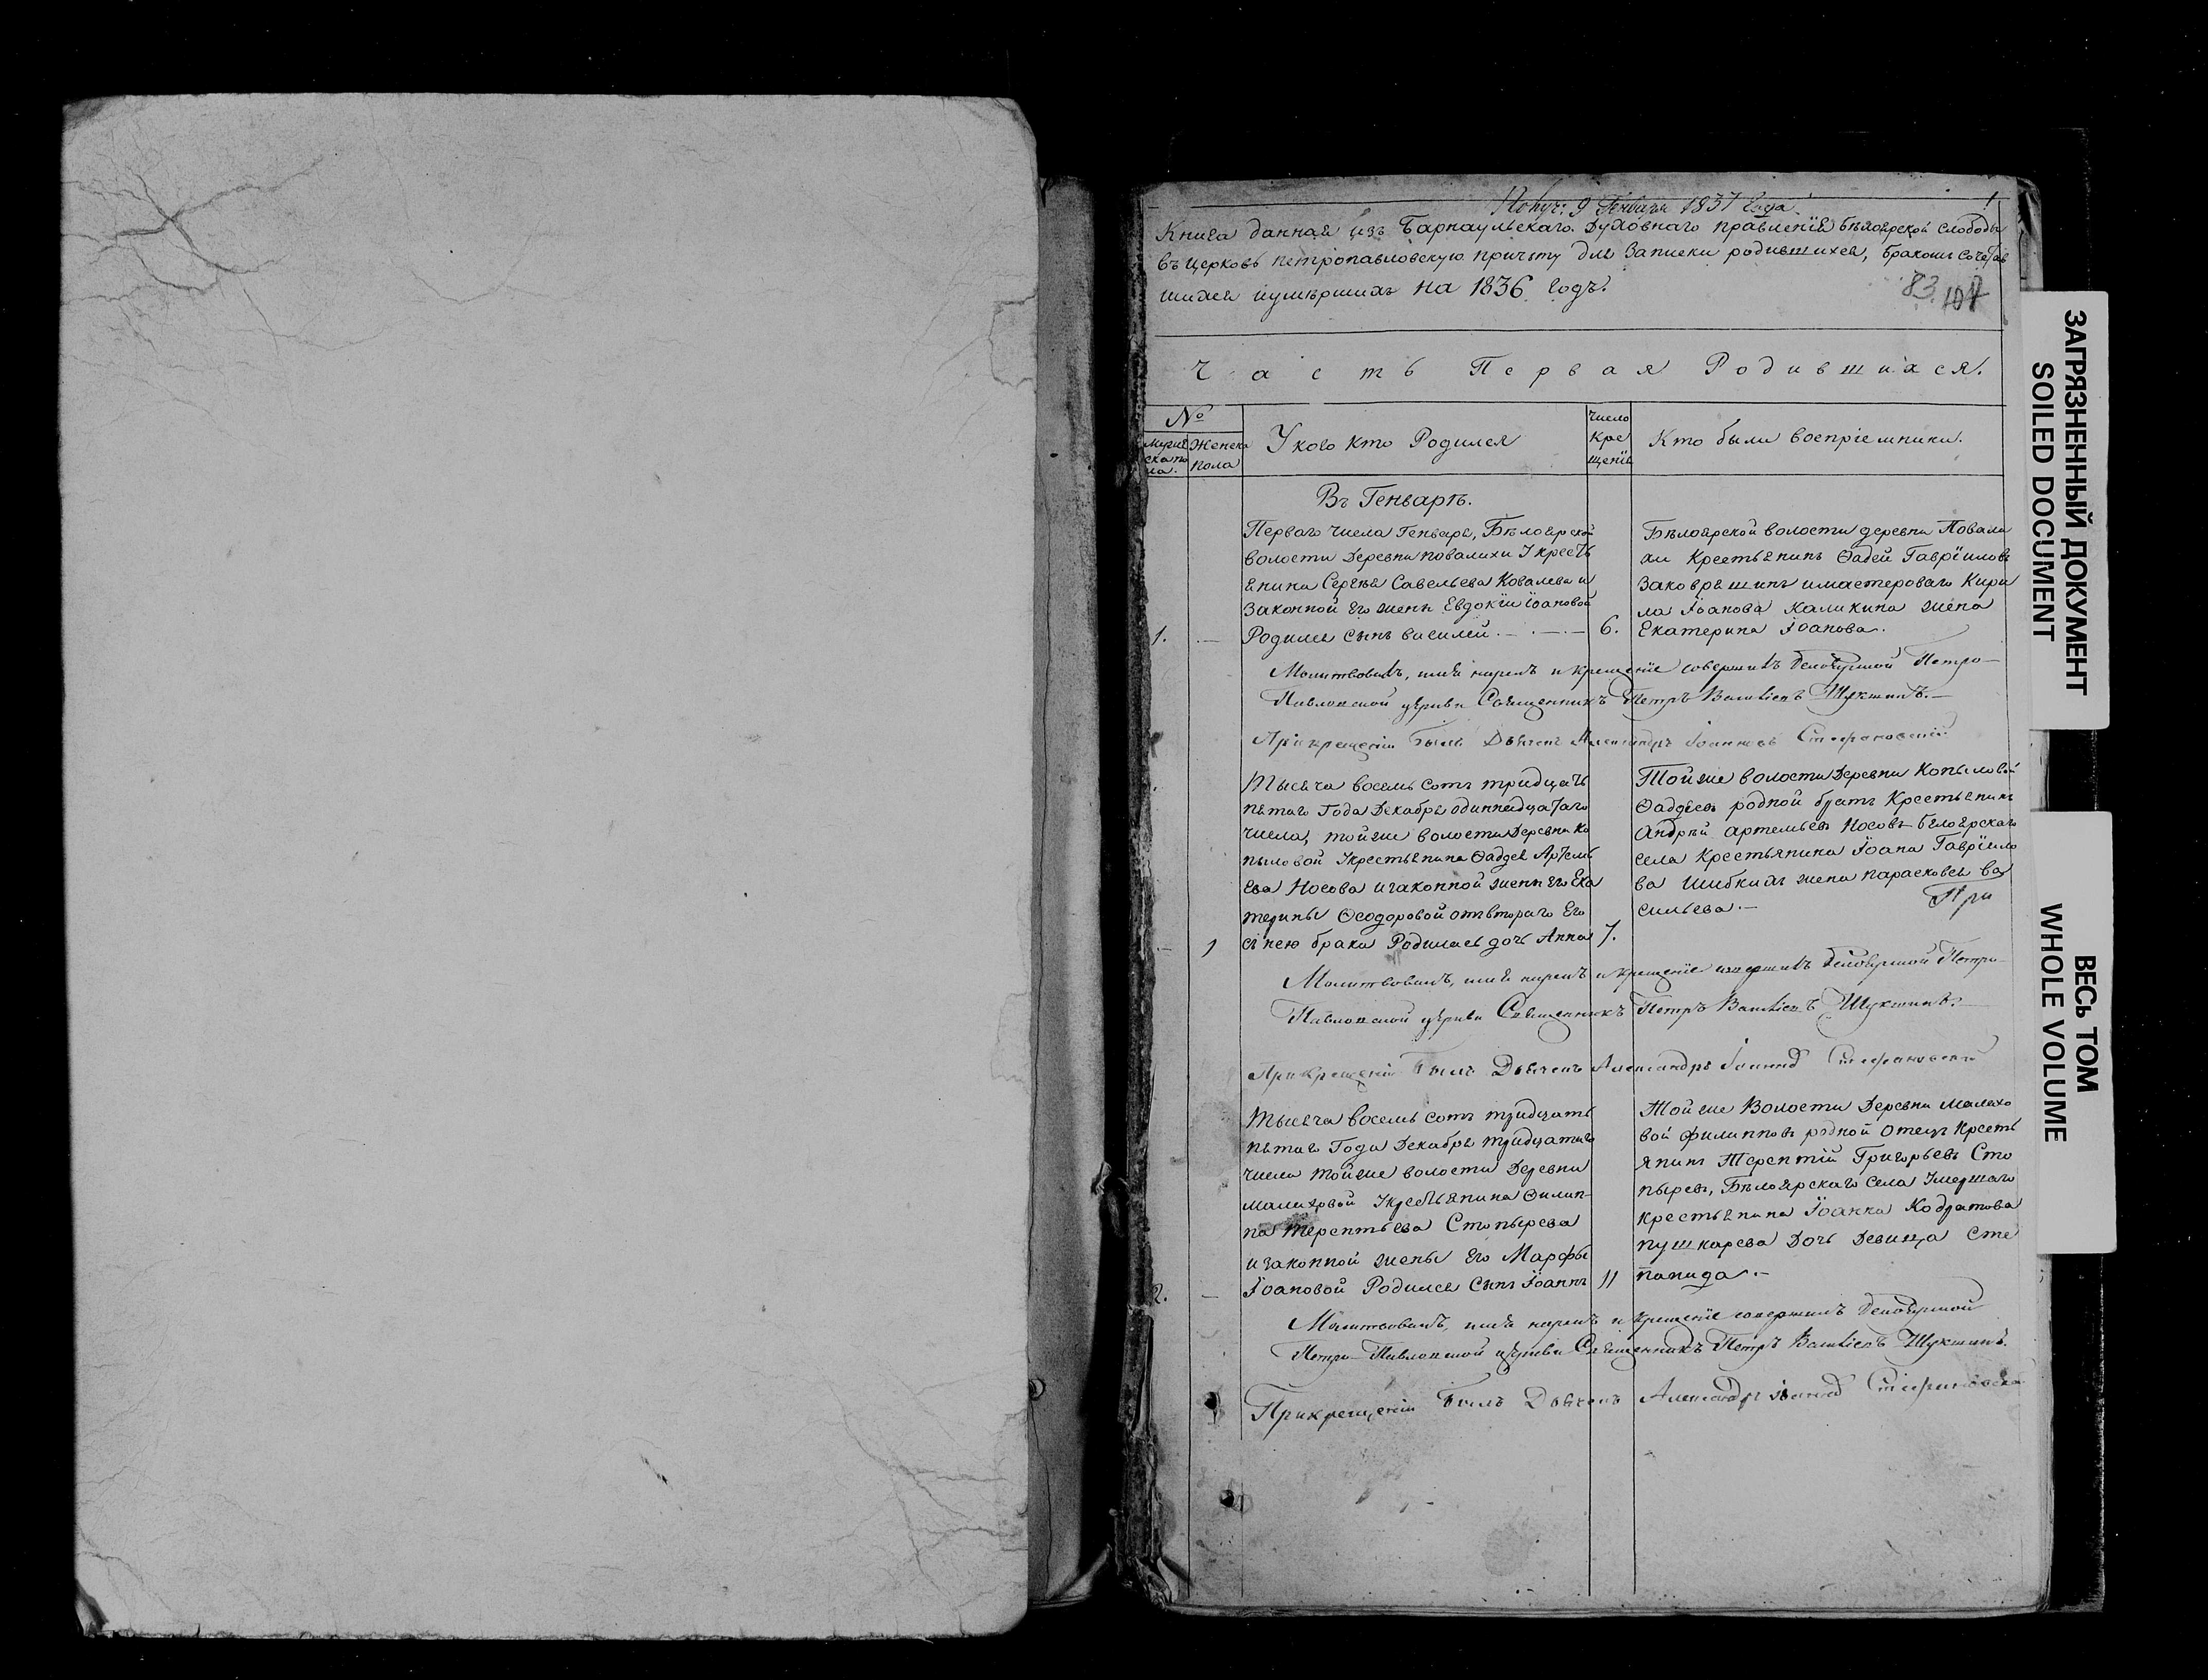 Получ: 9 Генваря 1837 Года.
1
Книга данная изъ Барнаульскаго Духовнаго правленія Бѣлоярской слободы
въ Церковь петропавловскую причту для Записки родившихся, бракомъ сочетав
шихся иумѣршихъ на 1836 Годъ.
83. 107
Часть Первая Родившихся.
№
Мужеска пола.
Женска пола
У кого кто Родился
Число Крещенія
Кто были воспріемники.
Въ Генварѣ.
Перваго Числа Генваря, Бѣлоярской
волости Деревни повалихи Укресть
янина Сергѣя Савельева Ковалева и
Законной Его жены Евдокіи Іоановой
1. — Родился сынъ василей. — . — . — 6.
Бѣлоярской волости деревни Повали
хи Крестьянинъ Фадей Гавріиловъ
Заковряшинъ имастероваго Кири
ла Іоанова Каликина жена
Екатерина Іоанова.
Молитвовалъ, имя нарекъ и крещеніе совершилъ Белоярской Петро-
Павловской церкви Священникъ Петръ Шукшинъ.—
Прикрещеніи былъ Дьячекъ Александръ Іоанновъ Стефановскій
Тысяча восемь сотъ тридцать
пятаго Года Декабря одиннадцатаго
числа, тойже волости Деревни Ко
пыловой Укрестьянина Фаддея Артемь
ева Носова изаконной жены его Ека
терины Феодоровой отвтораго Его
— 1 снею брака Родилась дочь Анна 7.
Тойже волости Деревни Копыловой
Фаддеевъ родной братъ Крестьянинъ
Андрѣй артемьевъ Носовъ Бѣлоярскаго
села Крестьянина Іоана Гавріило
ва Шибкихъ жена парасковья ва
сильева. —
При
Молитвовалъ, имя нарекъ и крещеніе совершилъ Белоярской Петро-
Павловской церкви Священникъ Петръ Шукшинъ.—
Прикрещеніи былъ Дьячекъ Александръ Стефановскій
Тысяча восемь сотъ тридцать
пятаго Года Декабря тридцатаго
числа тойже волости Деревни
малаховой Укрестьянина Филип-
па терентьева Стопырева
изаконной жены Его Марфы
2. — Іоановой Родился Сынъ Іоаннъ 11
Тойже Волости Деревни Малахо
вой филипповъ родной отецъ Кресть
янинъ Терентій Григорьевъ Сто
пыревъ, Бѣлоярскаго села Умершаго
крестьянина Іоанна Кодратова
пушкарева Дочь Девица Сте
панида. —
Молитвовалъ, имя нарекъ и крещеніе совершилъ Белоярской
Петро-Павловской церкви Священникъ Петръ Шукшинъ.
Прикрещеніи былъ Дьячекъ Александръ Стефановскій
ЗАГРЯЗНЕННЫЙ ДОКУМЕНТ
SOILED DOCUMENT
ВЕСЬ ТОМ
WHOLE VOLUME